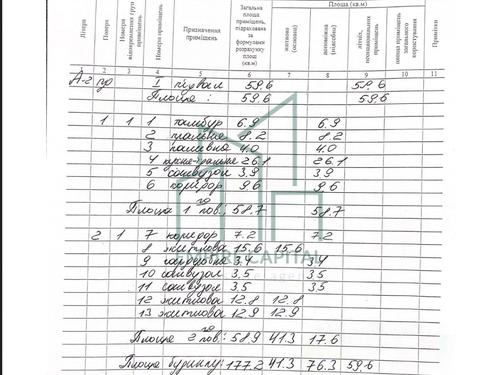 Площа (кв.м)
Літера Поверх Номери відокремлених груп приміщень Номери приміщень Призначення приміщень Загальна площа приміщень, підрахована за формулами розрахунку площ (кв.м) житлова (основна) допоміжна (підсобна) літніх, неопалювальних приміщень площа приміщень загального користування Примітки
1 2 3 4 5 6 7 8 9 10 11
А-2 пд I підвал 59.6 59.6
Площа : 59.6 59.6
1 1 1 тамбур 6.9 6.9
2 пральня 8.2 8.2
3 паливна 4.0 4.0
4 кухня-вітальня 26.1 26.1
5 санвузол 3.9 3.9
6 коридор 9.6 9.6
Площа 1 го пов.: 58.7 58.7
2 1 7 коридор 7.2 7.2
8 житлова 15.6 15.6
9 гардеробна 3.4 3.4
10 санвузол 3.5 3.5
11 санвузол 3.5 3.5
12 житлова 12.8 12.8
13 житлова 12.9 12.9
Площа 2 го пов.: 58.9 41.3 17.6
Площа будинку: 177.2 41.3 76.3 59.6
CAPITAL